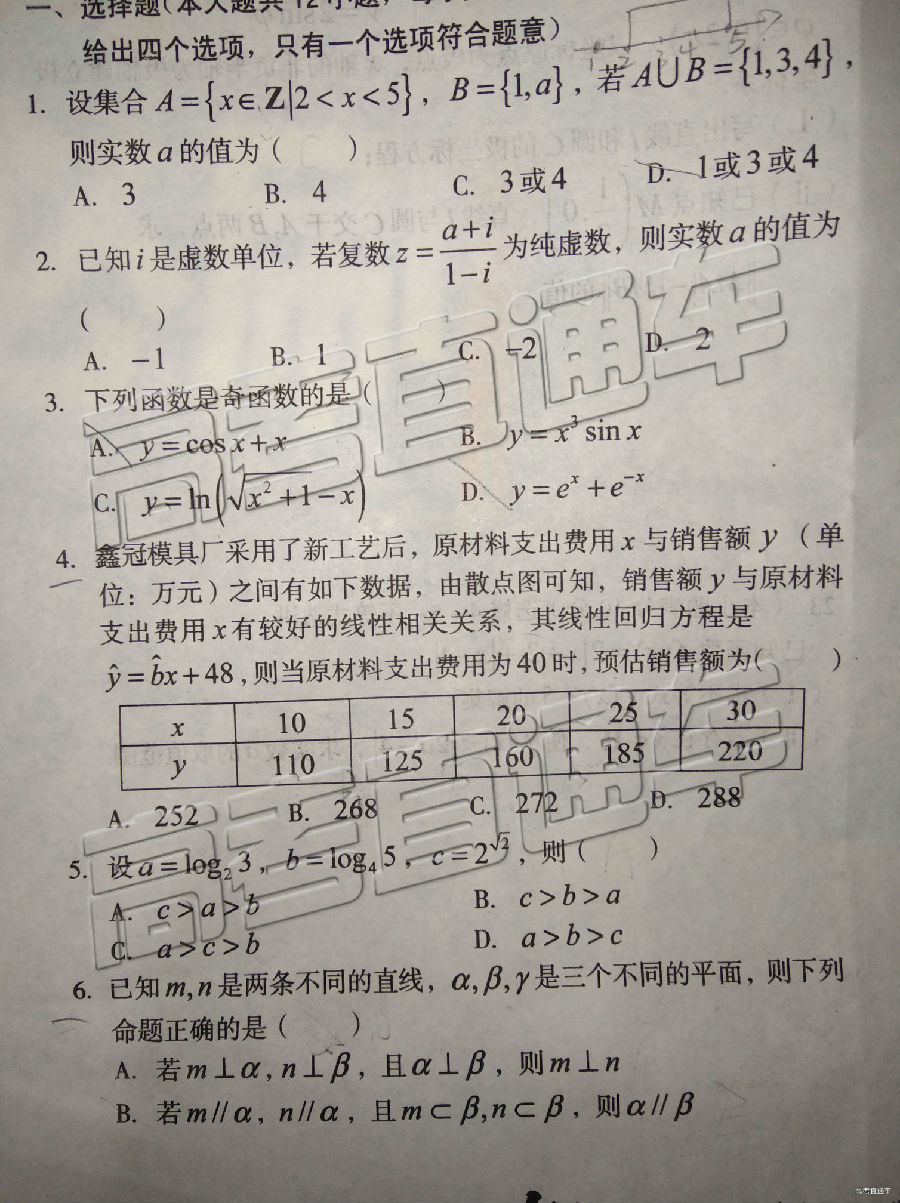 一、选择题(本大题共12小题，
给出四个选项，只有一个选项符合题意)
1. 设集合 A={x∈Z|2<x<5}，B={1,a}，若A∪B={1,3,4}，
则实数a的值为（　　）
A. 3　B. 4　C. 3或4　D. 1或3或4
2. 已知i是虚数单位，若复数z=(a+i)/(1-i)为纯虚数，则实数a的值为
（　　）
A. -1　B. 1　C. -2　D. 2
3. 下列函数是奇函数的是（　　）
A. y=cosx+x　B. y=x³sinx
C. y=ln(√(x²+1)-x)　D. y=eˣ+e⁻ˣ
4. 鑫冠模具厂采用了新工艺后，原材料支出费用x与销售额y（单
位：万元）之间有如下数据，由散点图可知，销售额y与原材料
支出费用x有较好的线性相关关系，其线性回归方程是
ŷ=b̂x+48,则当原材料支出费用为40时,预估销售额为(　　)
x　10　15　20　25　30
y　110　125　160　185　220
A. 252　B. 268　C. 272　D. 288
5. 设a=log₂3，b=log₄5，c=2^√2，则（　　）
A. c>a>b　B. c>b>a
C. a>c>b　D. a>b>c
6. 已知m,n是两条不同的直线，α,β,γ是三个不同的平面，则下列
命题正确的是（　　）
A. 若m⊥α,n⊥β，且α⊥β，则m⊥n
B. 若m//α，n//α，且m⊂β,n⊂β，则α//β
高考直通车
高考直通车
高考直通车